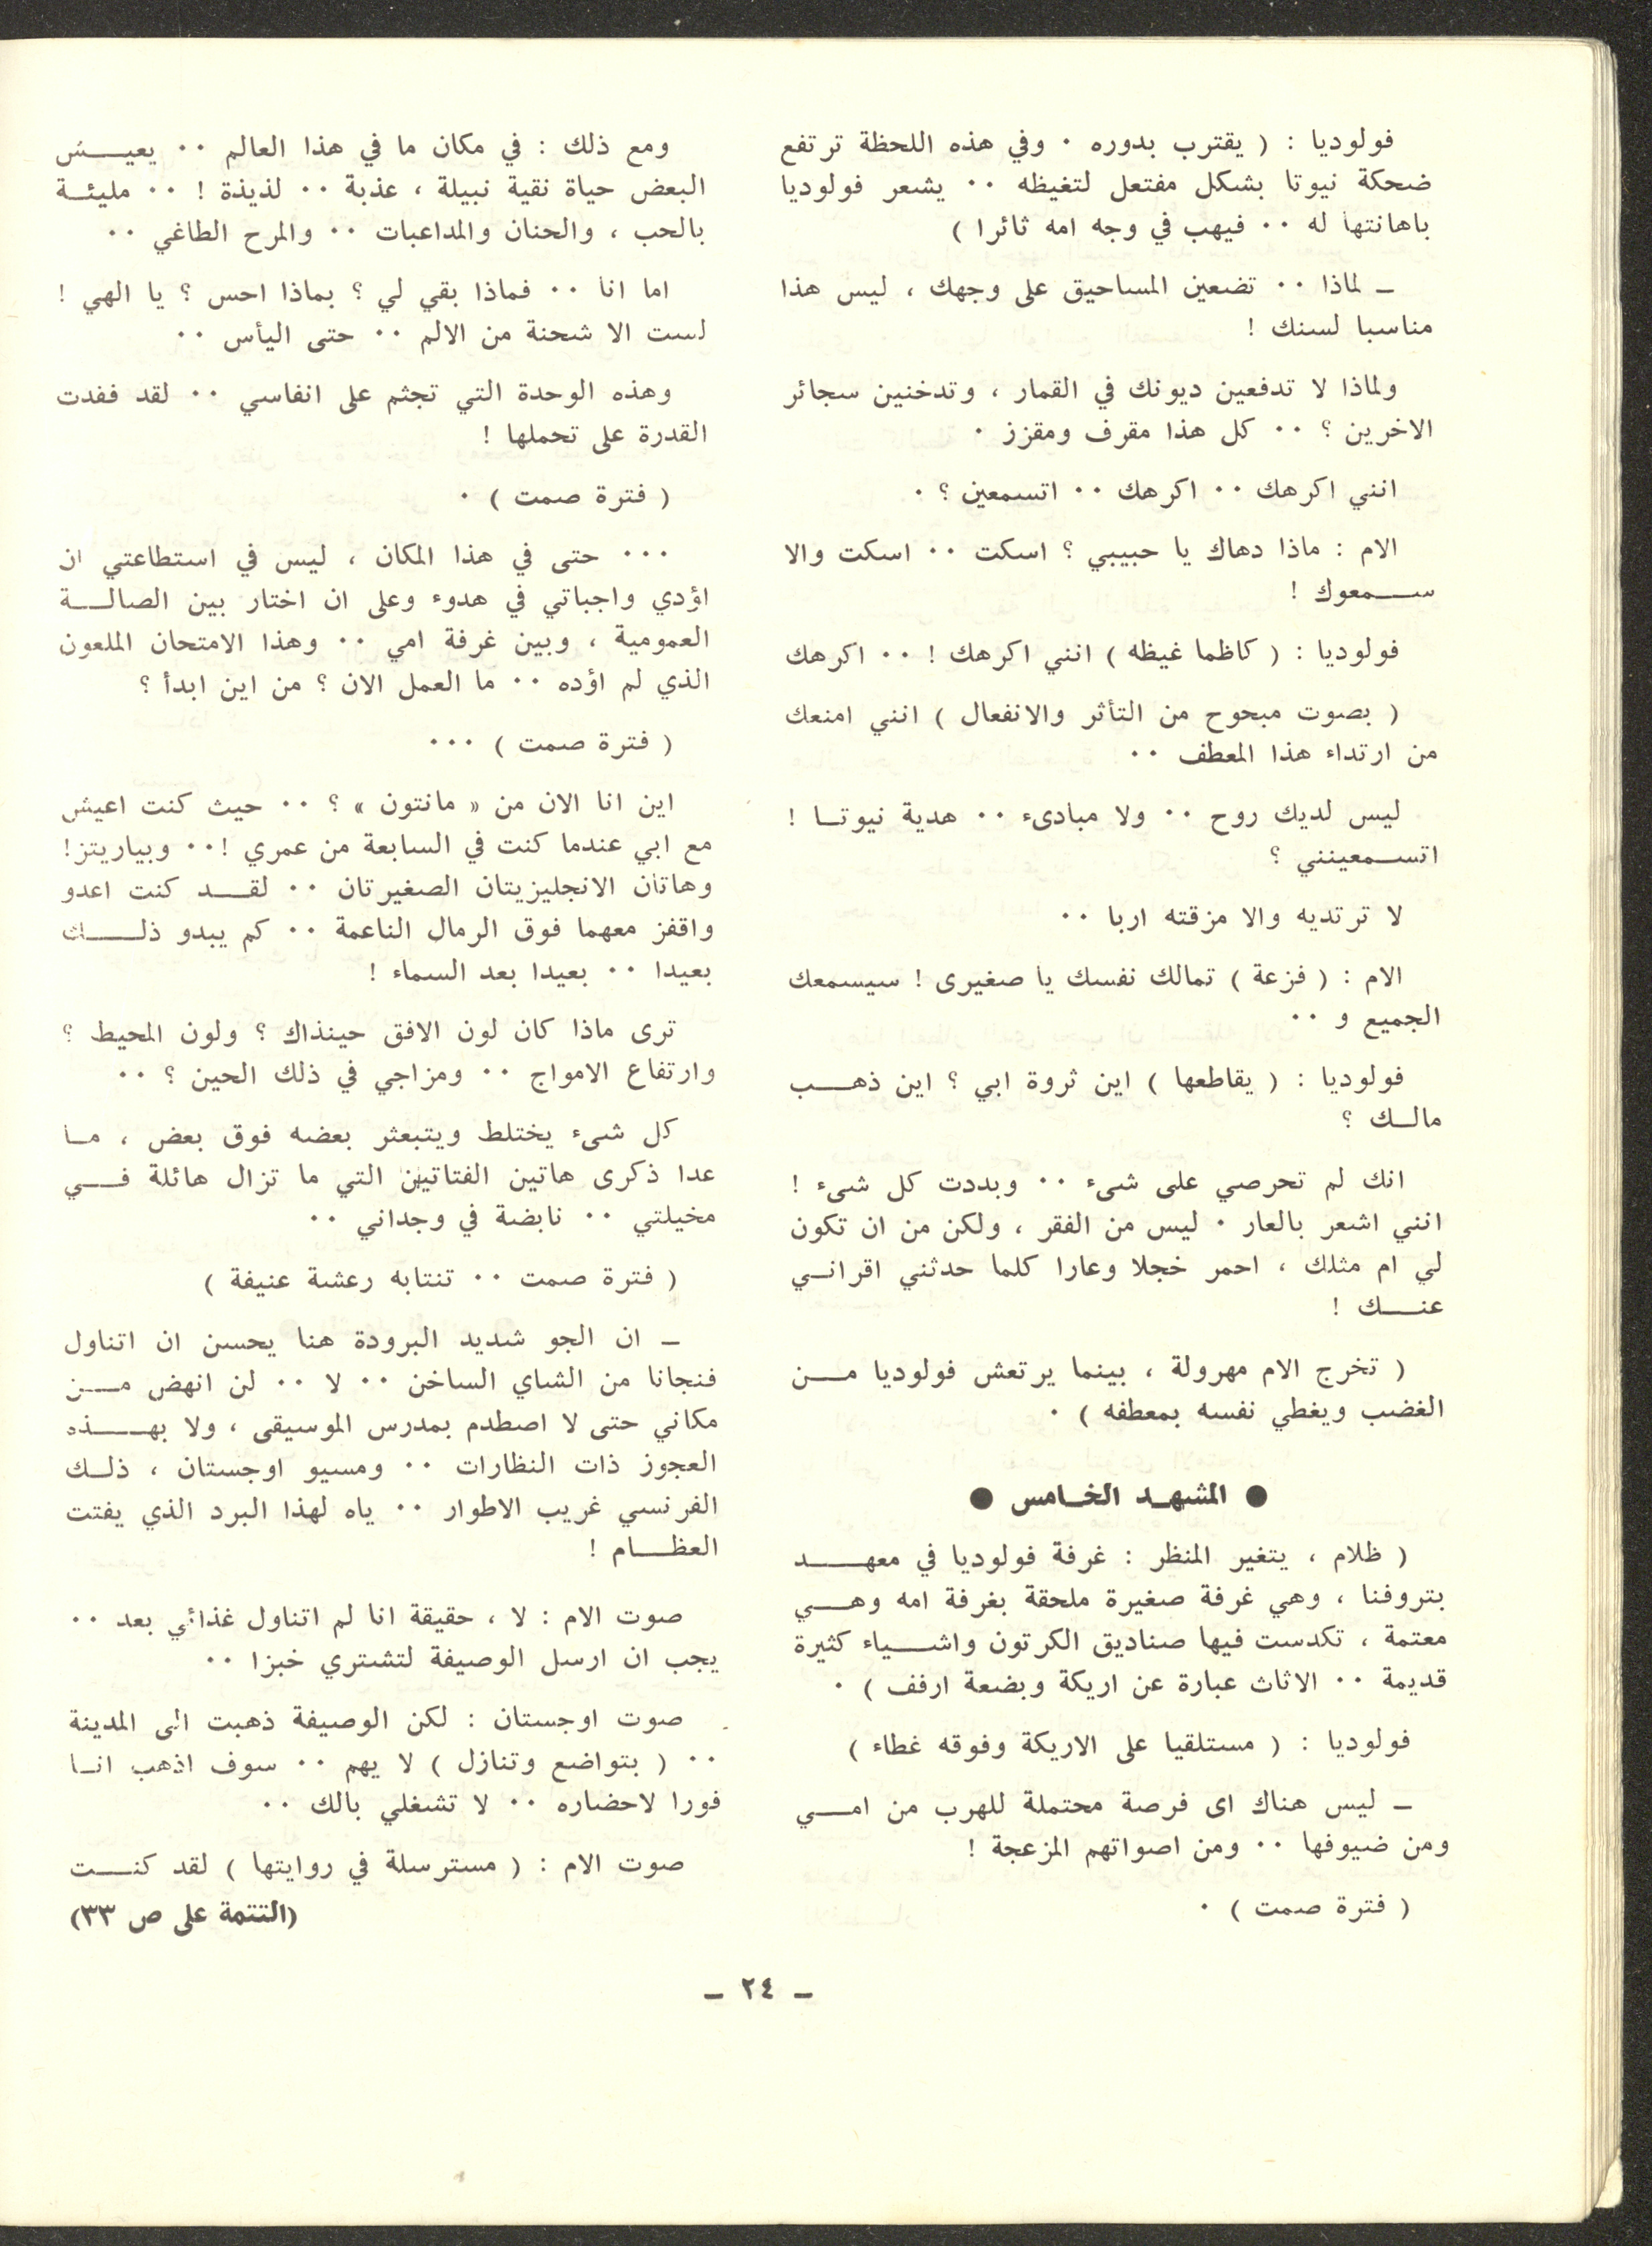 فولوديا : ( يقترب بدوره ٠ وفي هذه اللحظة ترتفع
ضحكة نيوتا بشكل مفتعل لتغيظه ٠٠ يشعر فولوديا
باهانتها له ٠٠ فيهب في وجه امه ثائرا )
ــ لماذا ٠٠ تضعين المساحيق على وجهك ، ليس هذا
مناسبا لسنك !
ولماذا لا تدفعين ديونك في القمار ، وتدخنين سجائر
الاخرين ؟ ٠٠ كل هذا مقرف ومقزز ٠
انني اكرهك ٠٠ اكرهك ٠٠ اتسمعين ؟ ٠
الام : ماذا دهاك يا حبيبي ؟ اسكت ٠٠ اسكت والا
ســـمعوك !
فولوديا : ( كاظما غيظه ) انني اكرهك ! ٠٠ اكرهك
( بصوت مبحوح من التأثر والانفعال ) انني امنعك
من ارتداء هذا المعطف ٠٠
ليس لديك روح ٠٠ ولا مبادىء ٠٠ هدية نيوتــا !
اتســـمعينني ؟
لا ترتديه والا مزقته اربا ٠٠
الام : ( فزعة ) تمالك نفسك يا صغيرى ! سيسمعك
الجميع و ٠٠
فولوديا : ( يقاطعها ) اين ثروة ابي ؟ اين ذهـــب
مالــك ؟
انك لم تحرصي على شىء ٠٠ وبددت كل شىء !
انني اشعر بالعار ٠ ليس من الفقر ، ولكن من ان تكون
لي ام مثلك ، احمر خجلا وعارا كلما حدثني اقرانــي
عنـــك !
( تخرج الام مهرولة ، بينما يرتعش فولوديا مـــن
الغضب ويغطي نفسه بمعطفه ) ٠
● المشهــد الخــامس ●
( ظلام ، يتغير المنظر : غرفة فولوديا في معهـــــد
بتروفنا ، وهي غرفة صغيرة ملحقة بغرفة امه وهـــي
معتمة ، تكدست فيها صناديق الكرتون واشـــياء كثيرة
قديمة ٠٠ الاثاث عبارة عن اريكة وبضعة ارفف ) ٠
فولوديا : ( مستلقيا على الاريكة وفوقه غطاء )
ــ ليس هناك اى فرصة محتملة للهرب من امـــي
ومن ضيوفها ٠٠ ومن اصواتهم المزعجة !
( فترة صمت ) ٠
ومع ذلك : في مكان ما في هذا العالم ٠٠ يعيـــش
البعض حياة نقية نبيلة ، عذبة ٠٠ لذيذة ! ٠٠ مليئــة
بالحب ، والحنان والمداعبات ٠٠ والمرح الطاغي ٠٠
اما انا ٠٠ فماذا بقي لي ؟ بماذا احس ؟ يا الهي !
لست الا شحنة من الالم ٠٠ حتى اليأس ٠٠
وهذه الوحدة التي تجثم على انفاسي ٠٠ لقد فقدت
القدرة على تحملها !
( فترة صمت ) ٠
٠٠٠ حتى في هذا المكان ، ليس في استطاعتي ان
اؤدي واجباتي في هدوء وعلى ان اختار بين الصالـــة
العمومية ، وبين غرفة امي ٠٠ وهذا الامتحان الملعون
الذي لم اؤده ٠٠ ما العمل الان ؟ من اين ابدأ ؟
( فترة صمت ) ٠٠٠
اين انا الان من « مانتون » ؟ ٠٠ حيث كنت اعيش
مع ابي عندما كنت في السابعة من عمري !٠٠ وبياريتز!
وهاتان الانجليزيتان الصغيرتان ٠٠ لقـــد كنت اعدو
واقفز معهما فوق الرمال الناعمة ٠٠ كم يبدو ذلـــك
بعيدا ٠٠ بعيدا بعد السماء !
ترى ماذا كان لون الافق حينذاك ؟ ولون المحيط ؟
وارتفاع الامواج ٠٠ ومزاجي في ذلك الحين ؟ ٠٠
كل شىء يختلط ويتبعثر بعضه فوق بعض ، مــا
عدا ذكرى هاتين الفتاتين التي ما تزال هائلة فـــي
مخيلتي ٠٠ نابضة في وجداني ٠٠
( فترة صمت ٠٠ تنتابه رعشة عنيفة )
ــ ان الجو شديد البرودة هنا يحسن ان اتناول
فنجانا من الشاي الساخن ٠٠ لا ٠٠ لن انهض مـــن
مكاني حتى لا اصطدم بمدرس الموسيقى ، ولا بهـــذه
العجوز ذات النظارات ٠٠ ومسيو اوجستان ، ذلــك
الفرنسي غريب الاطوار ٠٠ ياه لهذا البرد الذي يفتت
العظـــام !
صوت الام : لا ، حقيقة انا لم اتناول غذائي بعد ٠٠
يجب ان ارسل الوصيفة لتشتري خبزا ٠٠
صوت اوجستان : لكن الوصيفة ذهبت الى المدينة
٠٠ ( بتواضع وتنازل ) لا يهم ٠٠ سوف اذهب انــا
فورا لاحضاره ٠٠ لا تشغلي بالك ٠٠
صوت الام : ( مسترسلة في روايتها ) لقد كنـــت
(التتمة على ص ٣٣)
ــ ٢٤ ــ